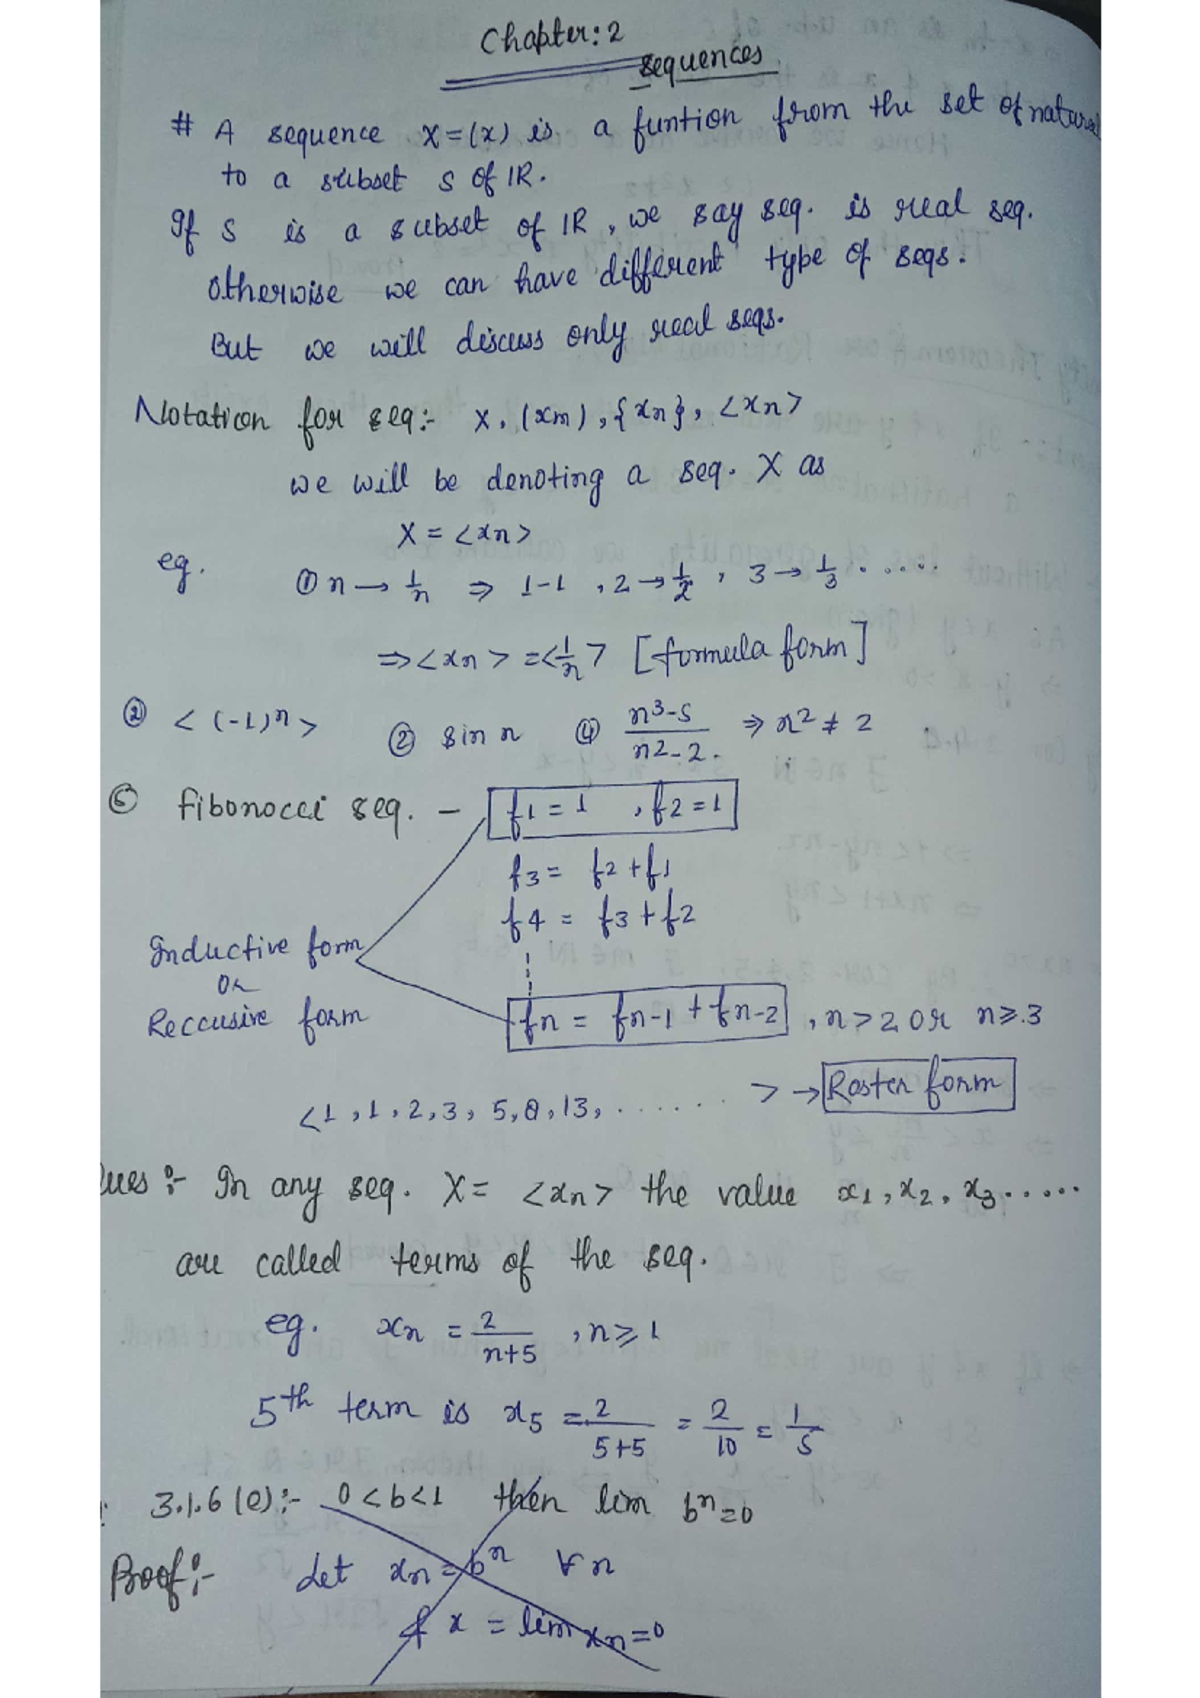 Chapter: 2
Sequences
# A sequence X = (x) is a funtion from the set of natural
to a subset S of IR.
If S is a subset of IR, we say seq. is real seq.
otherwise we can have different type of seqs.
But we will discuss only real seqs.
Notation for seq:- X, (xm), {xn}, <xn>
we will be denoting a seq. X as
X = <xn>
eg. ① n → 1/n ⇒ 1-1, 2 → 1/2, 3 → 1/3 .....
⇒ <xn> = <1/n> [formula form]
② < (-1)^n > ② sin n ④ n3-5/n2-2. ⇒ n2 ≠ 2
⑤ fibonocci seq. - f1 = 1, f2 = 1
f3 = f2 + f1
f4 = f3 + f2
Inductive form
or
Reccusive form
fn = fn-1 + fn-2, n > 2 or n ≥ 3
<1, 1, 2, 3, 5, 8, 13, ....... > → Roster form
lues :- In any seq. X = <xn> the value x1, x2, x3 .....
are called terms of the seq.
eg. xn = 2/n+5, n ≥ 1
5th term is x5 = 2/5+5 = 2/10 = 1/5
3.1.6 (e):- 0 < b < 1 then lim b^n = 0
Proof:- Let xn = b^n ∀ n
& x = lim xn = 0